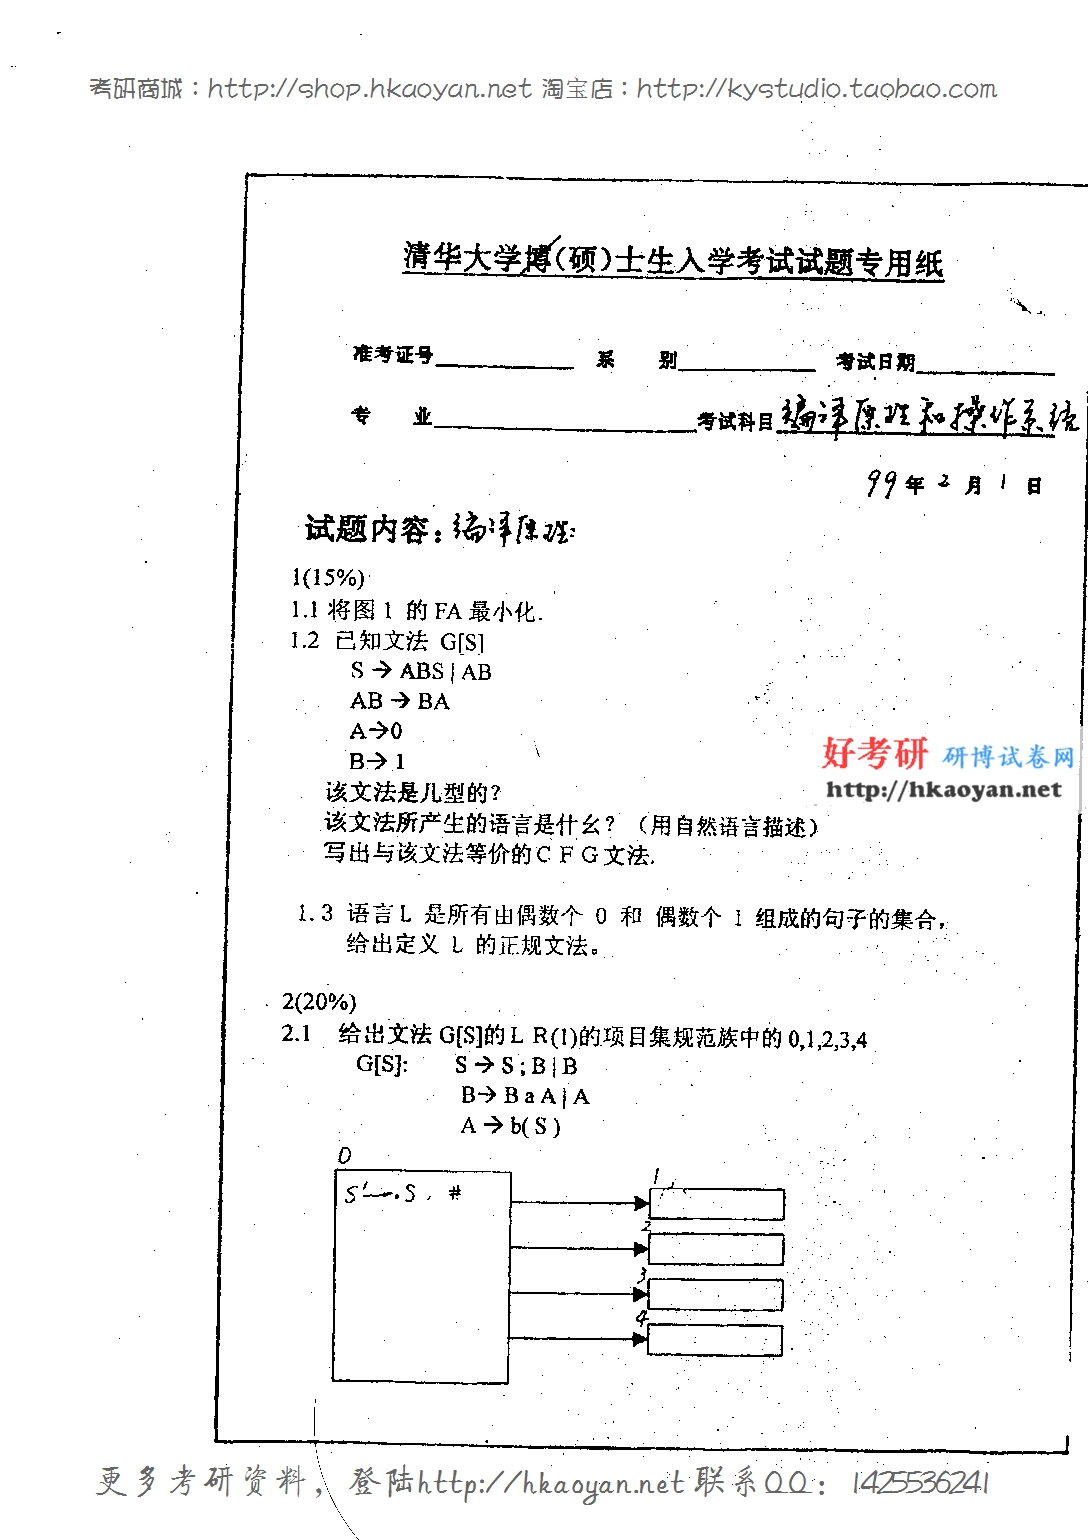 考研商城：http://shop.hkaoyan.net 淘宝店：http://kystudio.taobao.com
清华大学博（硕）士生入学考试试题专用纸
准考证号 系 别 考试日期
专 业 考试科目 编译原理和操作系统
99 年 2 月 1 日
试题内容：编译原理:
1(15%)
1.1 将图 1 的 FA 最小化.
1.2 已知文法 G[S]
S → ABS | AB
AB → BA
A→0
B→1
好考研 研博试卷网
http://hkaoyan.net
该文法是几型的？
该文法所产生的语言是什么？（用自然语言描述）
写出与该文法等价的ＣＦＧ文法.
1. 3 语言 L 是所有由偶数个 0 和 偶数个 1 组成的句子的集合，
给出定义 L 的正规文法。
2(20%)
2.1 给出文法 G[S]的ＬＲ(1)的项目集规范族中的 0,1,2,3,4
G[S]: S → S ; B | B
B→ B a A | A
A → b( S )
0
S'→.S , #
1
2
3
4
更多考研资料，登陆http://hkaoyan.net 联系QQ：1425536241